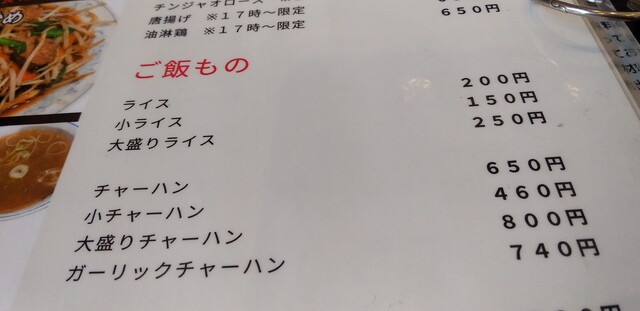 チンジャオロース
650円
唐揚げ ※17時～限定
油淋鶏 ※17時～限定
ご飯もの
ライス 200円
小ライス 150円
大盛りライス 250円
チャーハン 650円
小チャーハン 460円
大盛りチャーハン 800円
ガーリックチャーハン 740円